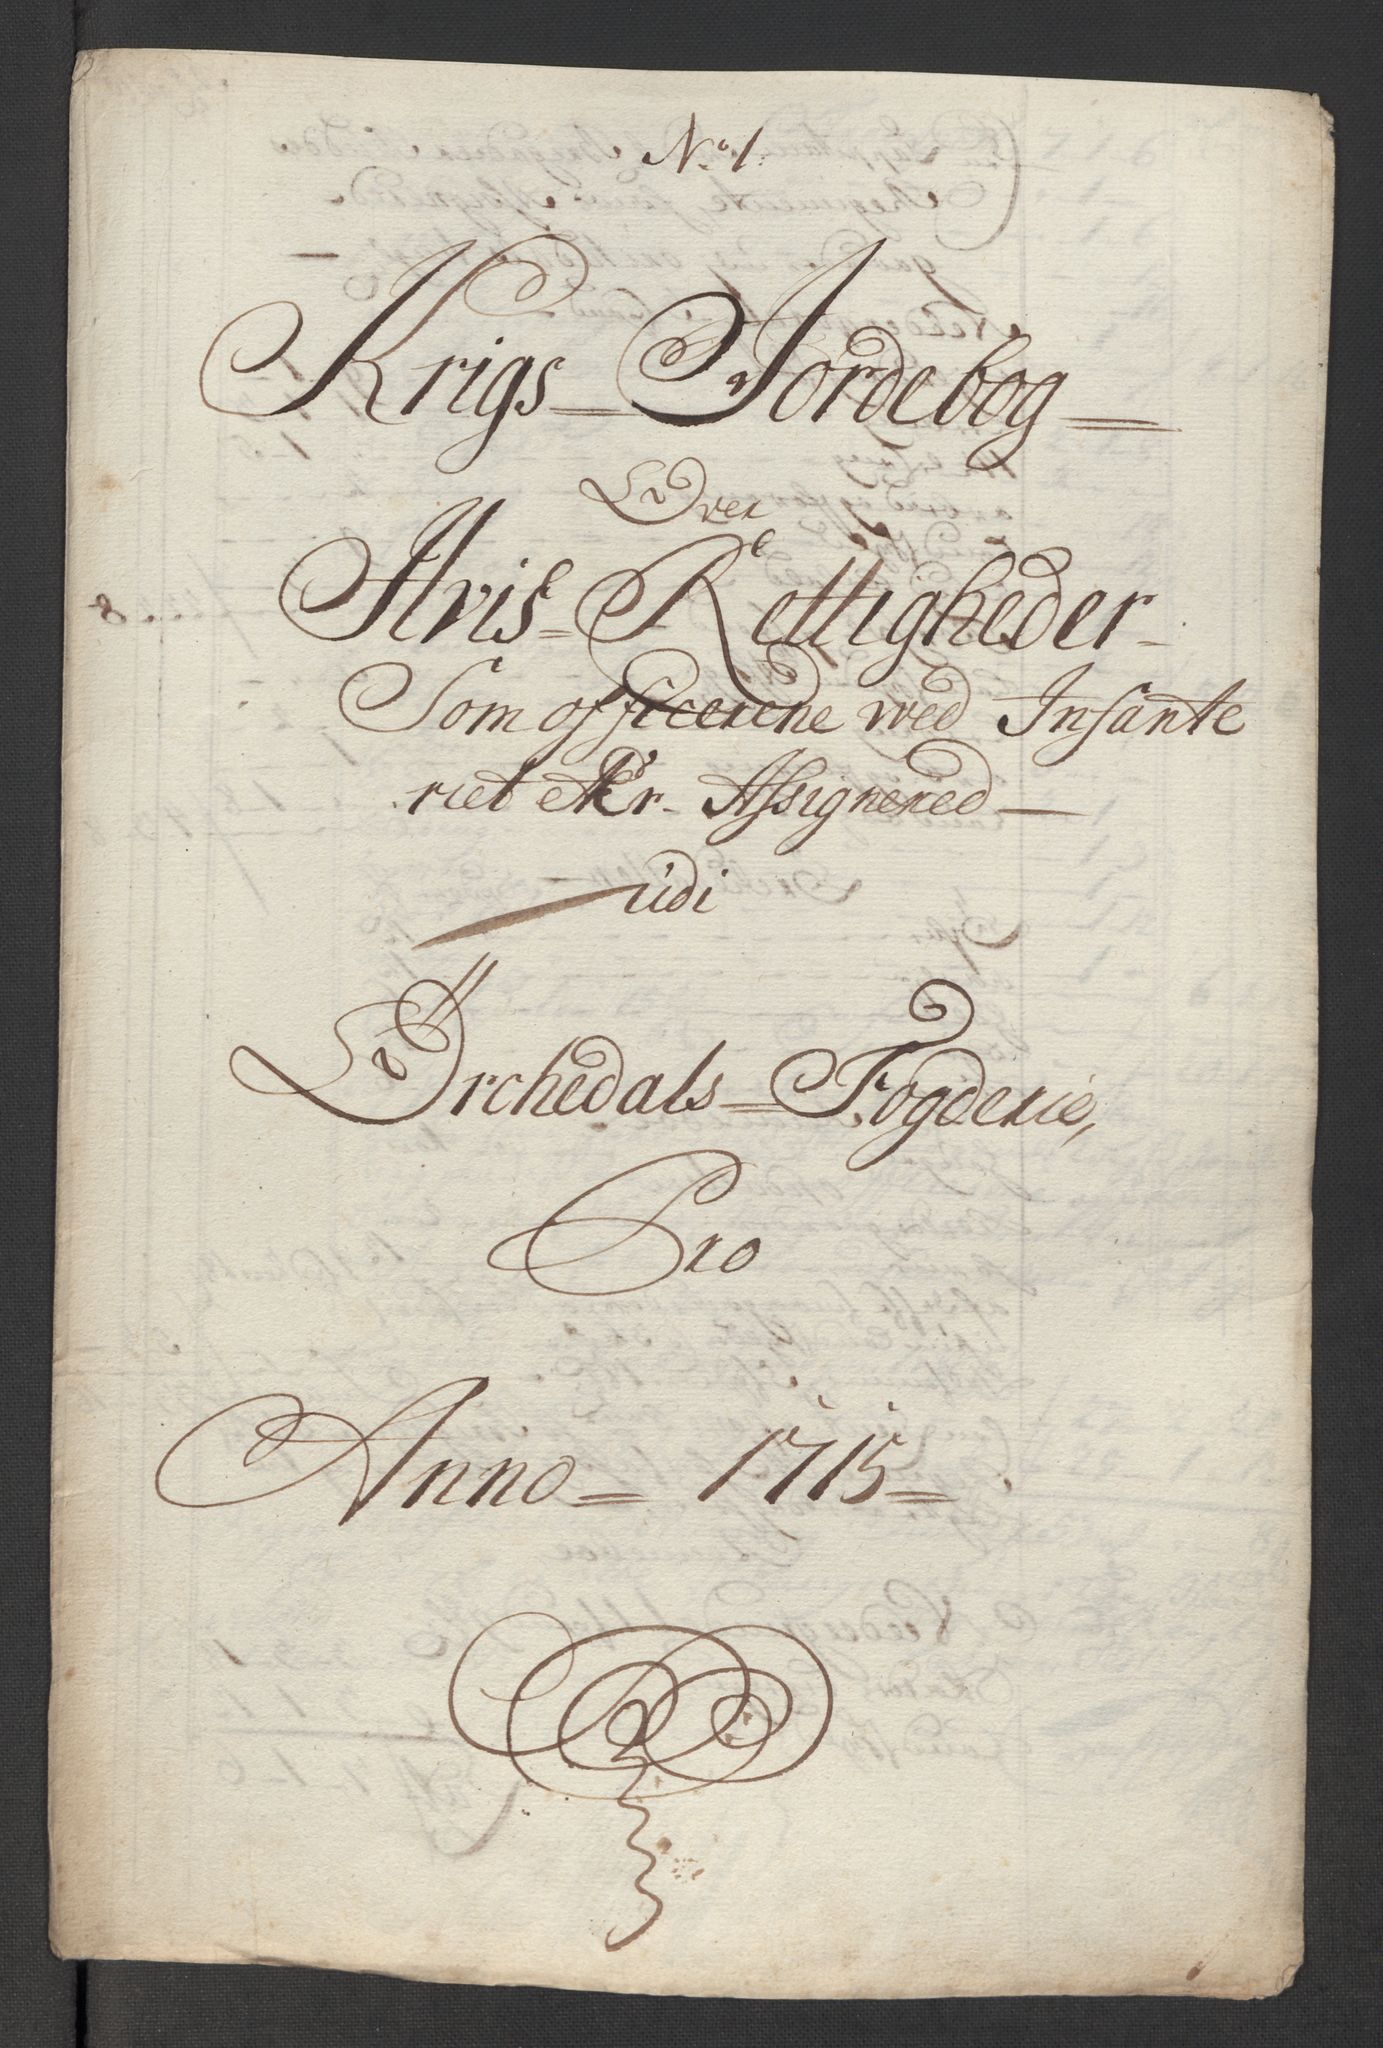 No 1.
Krigs Jordebog
Over
Hvis Rettigheder
Som officerene wed Infante
riet Er Assignered
udi
Örchedals Fogderie,
Pro
Anno 1715